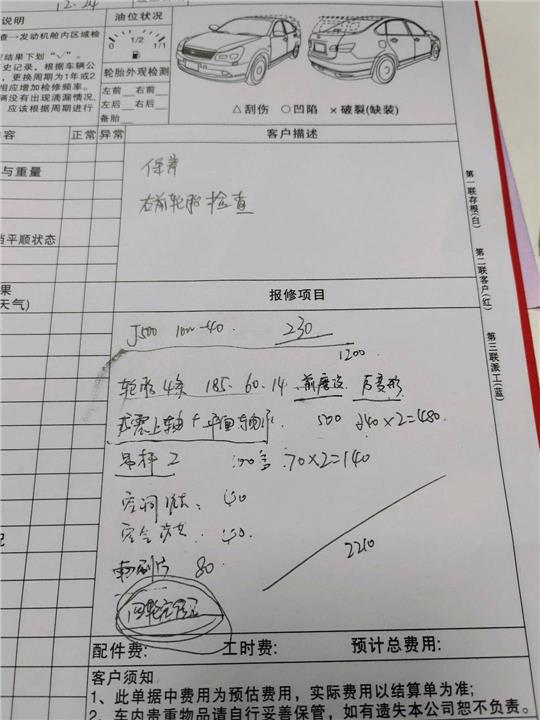 12.24
说明
油位状况
查→发动机舱内区域检
0 1/2 1/1
结果下划“√”。
史记录，根据车辆公
轮胎外观检测
，更换周期为1年或2
左前 右前
相应增加检修频率。
左后 右后
辆没有出现滴漏情况，
备胎
应该根据周期进行
△刮伤 ○凹陷 ×破裂(缺装)
容 正常 异常
客户描述
保养
右前轮胎检查
与重量
当平顺状态
果
天气)
报修项目
J500 10w-40. 230
1200
轮胎4条 185.60.14
上轴+平面轴承 500 240×2=480
吊杆 2 70×2=140
80
2210
四轮定位
配件费: 工时费: 预计总费用:
客户须知
1、此单据中费用为预估费用，实际费用以结算单为准;
2、车内贵重物品请自行妥善保管，如有遗失本公司恕不负责。
第一联存根(白)
第二联客户(红)
第三联派工(蓝)